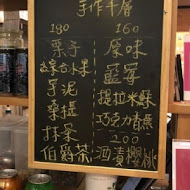 手作千層
180
栗子
綜合水果
芋泥
桑椹
抹茶
伯爵茶
160
原味
藍莓
提拉米蘇
巧克力香蕉
200
酒漬櫻桃